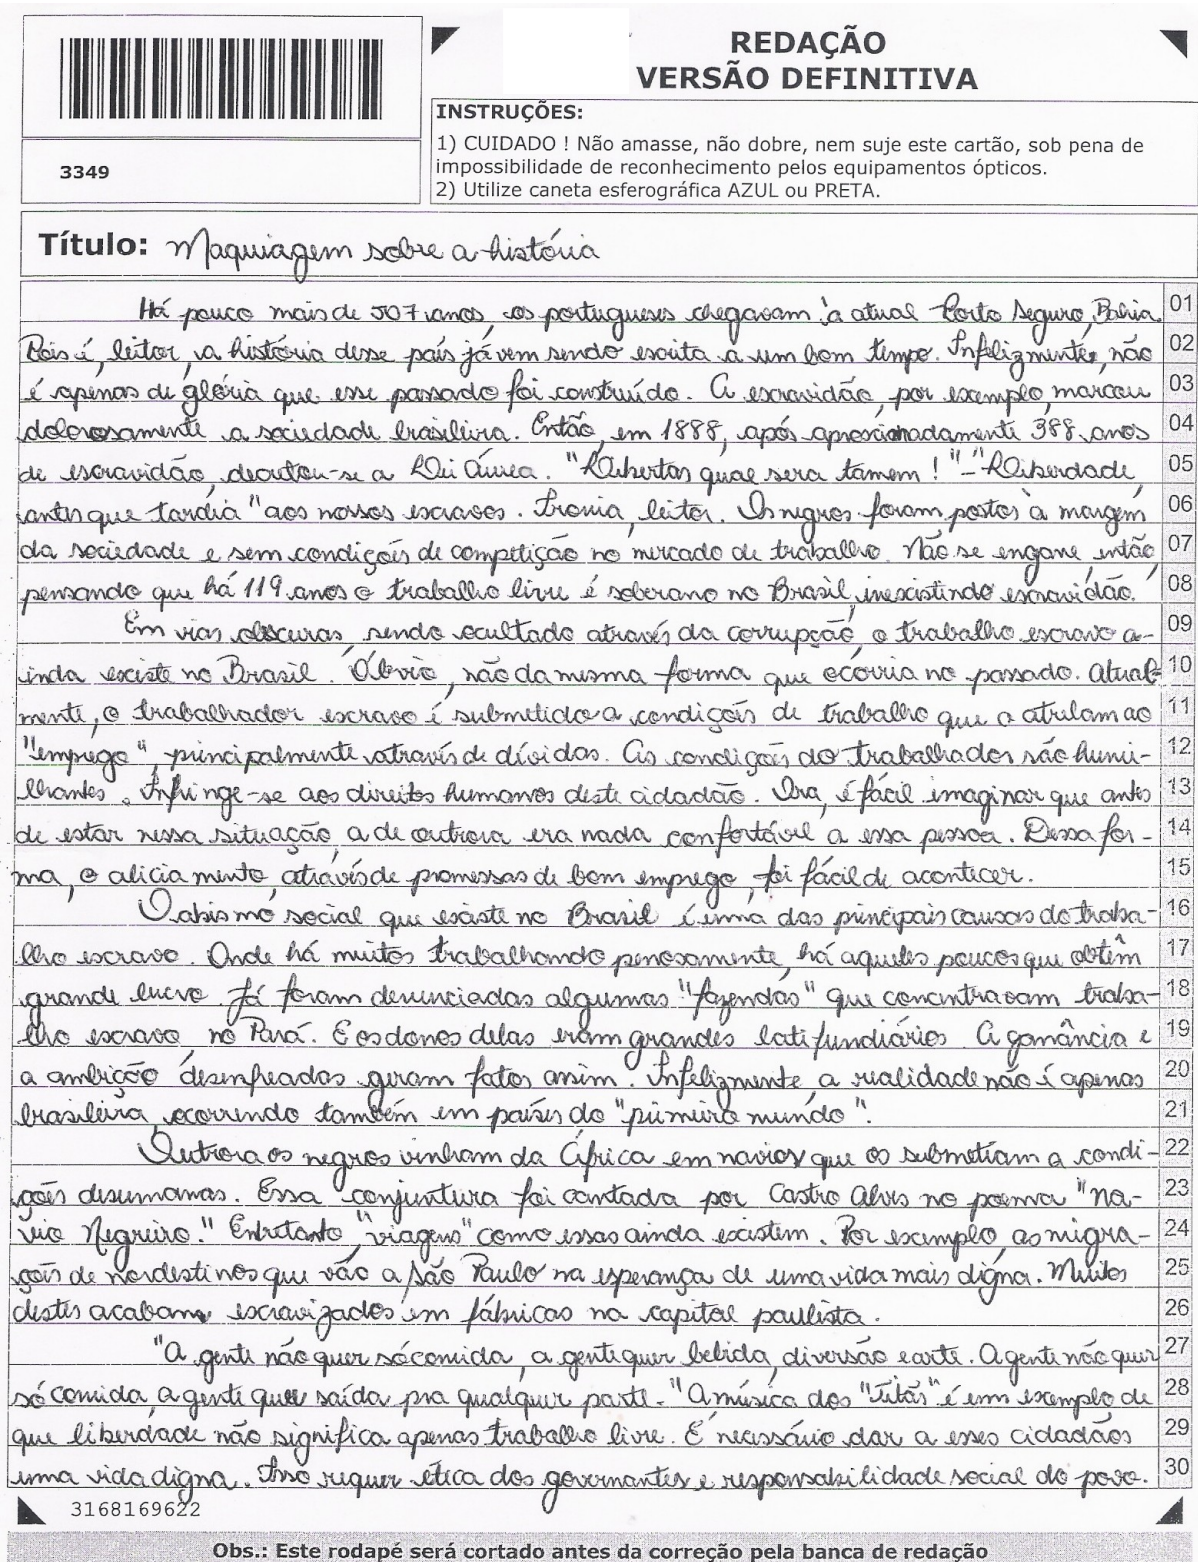 REDAÇÃO
VERSÃO DEFINITIVA
INSTRUÇÕES:
1) CUIDADO ! Não amasse, não dobre, nem suje este cartão, sob pena de
impossibilidade de reconhecimento pelos equipamentos ópticos.
2) Utilize caneta esferográfica AZUL ou PRETA.
3349
Título: Maquiagem sobre a história
Há pouco mais de 507 anos, os portugueses chegavam à atual Porto Seguro, Bahia. 01
Pois é, leitor, a história desse país já vem sendo escrita a um bom tempo. Infelizmente, não 02
é apenas de glória que esse passado foi construído. A escravidão, por exemplo, marcou 03
dolorosamente a sociedade brasileira. Então, em 1888, após aproximadamente 388 anos 04
de escravidão, decretou-se a Lei Áurea. "Libertas qual sera tamem!"-"Liberdade, 05
antes que tardia" aos nossos escravos. Ironia, leitor. Os negros foram postos à margem 06
da sociedade e sem condições de competição no mercado de trabalho. Não se engane, então, 07
pensando que há 119 anos o trabalho livre é soberano no Brasil, inexistindo escravidão. 08
Em vias obscuras, sendo ocultado através da corrupção, o trabalho escravo a- 09
inda existe no Brasil. Óbvio, não da mesma forma que ocorria no passado. Atual- 10
mente, o trabalhador escravo é submetido a condições de trabalho que o atrelam ao 11
"emprego", principalmente através de dívidas. As condições do trabalhador são humi- 12
lhantes. Infringe-se aos direitos humanos deste cidadão. Ora, é fácil imaginar que antes 13
de estar nessa situação, a de outrora era nada confortável a essa pessoa. Dessa for- 14
ma, o aliciamento, através de promessas de bom emprego, foi fácil de acontecer. 15
O abismo social que existe no Brasil é uma das principais causas do traba- 16
lho escravo. Onde há muitos trabalhando penosamente, há aqueles poucos que obtêm 17
grande lucro. Já foram denunciadas algumas "fazendas" que concentravam traba- 18
lho escravo no Pará. E os donos delas eram grandes latifundiários. A ganância e 19
a ambição desenfreadas geram fatos assim. Infelizmente, a realidade não é apenas 20
brasileira, ocorrendo também em países do "primeiro mundo". 21
Outrora os negros vinham da África em navios que os submetiam a condi- 22
ções desumanas. Essa conjuntura foi cantada por Castro Alves no poema "Na- 23
vio Negreiro." Entretanto, "viagens" como essas ainda existem. Por exemplo, as migra- 24
ções de nordestinos que vão a São Paulo na esperança de uma vida mais digna. Muitos 25
destes acabam escravizados em fábricas na capital paulista. 26
"A gente não quer só comida, a gente quer bebida, diversão e arte. A gente não quer 27
só comida, a gente quer saída pra qualquer parte." A música dos "Titãs" é um exemplo de 28
que liberdade não significa apenas trabalho livre. É necessário dar a esses cidadãos 29
uma vida digna. Isso requer ética dos governantes e responsabilidade social do povo. 30
3168169622
Obs.: Este rodapé será cortado antes da correção pela banca de redação